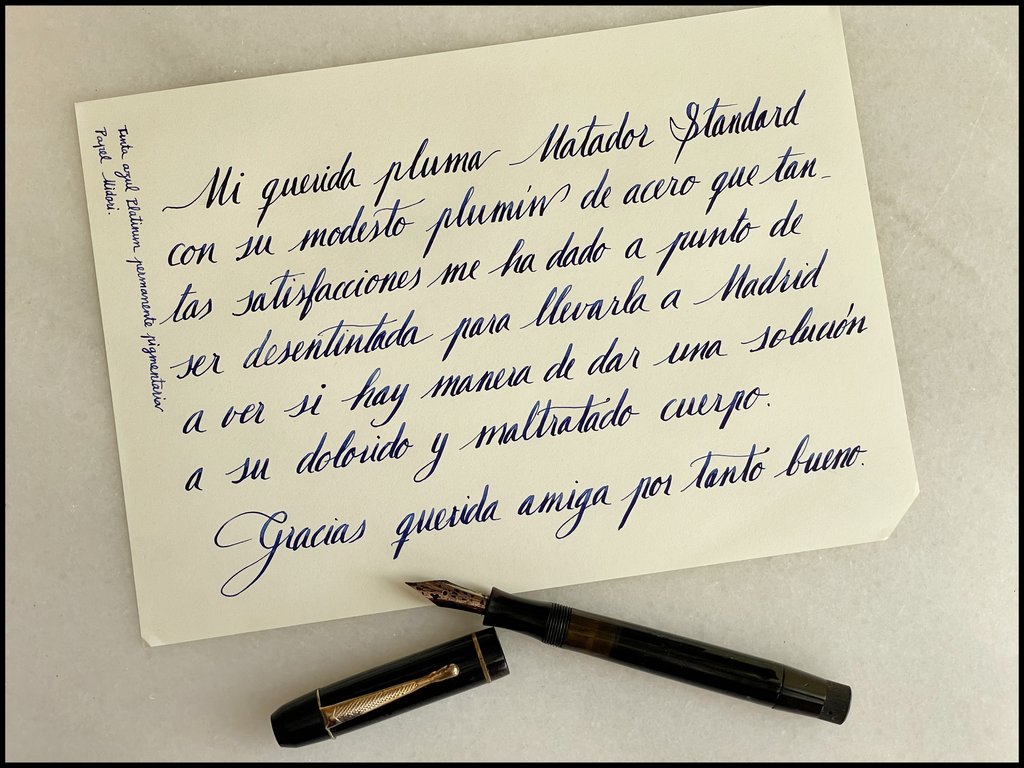 Mi querida pluma Matador Standard
con su modesto plumín de acero que tan-
tas satisfacciones me ha dado a punto de
ser desentintada para llevarla a Madrid
a ver si hay manera de dar una solución
a su dolorido y maltratado cuerpo.
Gracias querida amiga por tanto bueno.
Tinta azul Platinum permanente pigmentaria
Papel Midori.